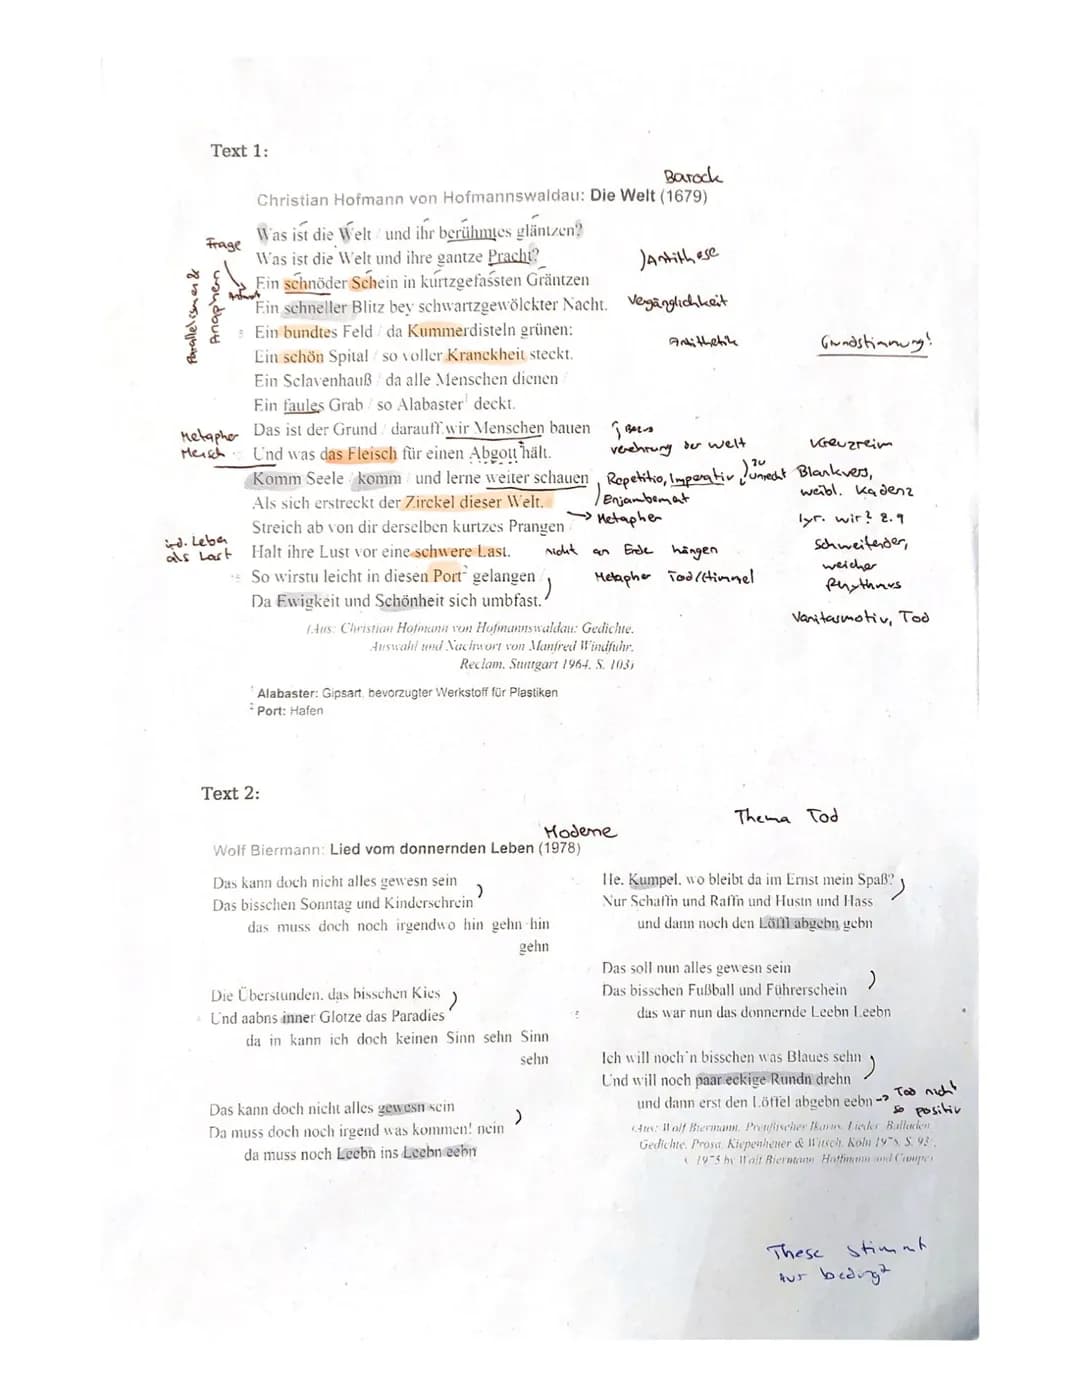 Text 1:
Barock
Christian Hofmann von Hofmannswaldau: Die Welt (1679)
Was ist die Welt / und ihr berühmtes gläntzen?
Frage
Was ist die Welt und ihre gantze Pracht?
)Antithese
Parallelismen &
Anaphern
Antwort
Ein schnöder Schein in kurtzgefassten Gräntzen
Ein schneller Blitz bey schwartzgewölckter Nacht.
Vergänglichkeit
5 Ein bundtes Feld / da Kummerdisteln grünen:
Antithetik
Grundstimmung!
Ein schön Spital / so voller Kranckheit steckt.
Ein Sclavenhauß / da alle Menschen dienen /
Ein faules Grab / so Alabaster¹ deckt.
Das ist der Grund / darauff wir Menschen bauen
Metapher
Mensch
Und was das Fleisch für einen Abgott hält.
Verehrung der Welt
zu
unrecht
Kreuzreim
Komm Seele / komm / und lerne weiter schauen
Repetitio, Imperativ
Enjambemat
Blankvers,
weibl. Kadenz
Als sich erstreckt der Zirckel dieser Welt.
→ Metapher
Streich ab von dir derselben kurtzes Prangen /
lyr. wir? Z.9
ird. Leben
als Last
Halt ihre Lust vor eine schwere Last.
nicht an Erde hängen
Schweifender,
weicher
Rhythmus
15 So wirstu leicht in diesen Port² gelangen /
Metapher Tod/Himmel
Da Ewigkeit und Schönheit sich umbfast.
Vanitasmotiv, Tod
(Aus: Christian Hofmann von Hofmannswaldau: Gedichte.
Auswahl und Nachwort von Manfred Windfuhr.
Reclam. Stuttgart 1964. S. 103)
¹ Alabaster: Gipsart, bevorzugter Werkstoff für Plastiken
² Port: Hafen
Text 2:
Thema Tod
Moderne
Wolf Biermann: Lied vom donnernden Leben (1978)
Das kann doch nicht alles gewesn sein
Das bisschen Sonntag und Kinderschrein
das muss doch noch irgendwo hin gehn hin
gehn
Die Überstunden, das bisschen Kies
Und aabns inner Glotze das Paradies
da in kann ich doch keinen Sinn sehn Sinn
sehn
Das kann doch nicht alles gewesn sein
Da muss doch noch irgend was kommen! nein
da muss noch Leebn ins Leebn eebn
He, Kumpel, wo bleibt da im Ernst mein Spaß?
Nur Schaffn und Raffn und Hustn und Hass
und dann noch den Löffl abgebn gebn
Das soll nun alles gewesn sein
Das bisschen Fußball und Führerschein
das war nun das donnernde Leebn Leebn
Ich will noch'n bisschen was Blaues sehn
Und will noch paar eckige Rundn drehn
und dann erst den Löffel abgebn eebn
-> Tod nicht
so positiv
(Aus: Wolf Biermann. Preußischer Ikarus. Lieder Balladen
Gedichte. Prosa. Kiepenheuer & Witsch. Köln 1978. S. 92.
1975 by Wolf Biermann. Hoffmann und Campe)
These stimmt
nur bedingt